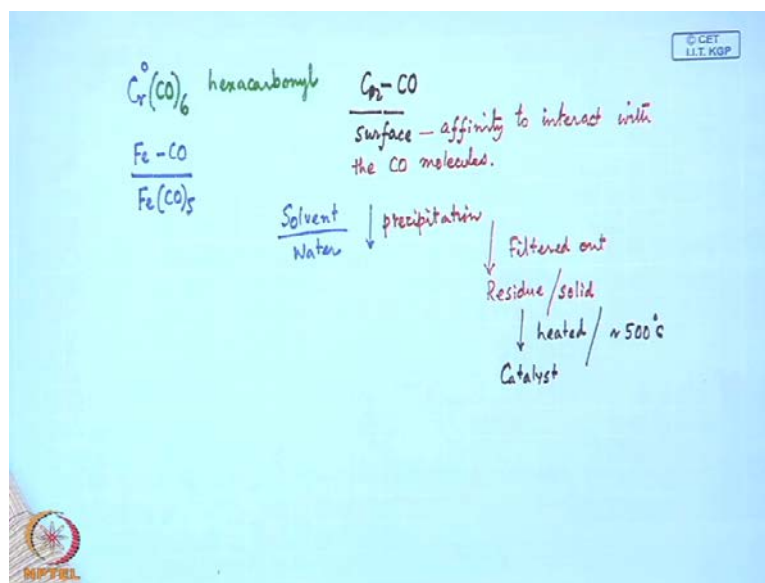 © CET
I.I.T. KGP
Cr⁰(CO)₆ hexacarbonyl
Fe-CO
Fe(CO)₅
-CO
surface – affinity to interact with
the CO molecules.
Solvent
Water
↓ precipitation
↓ Filtered out
Residue/solid
↓ heated / ~500°C
Catalyst
NPTEL